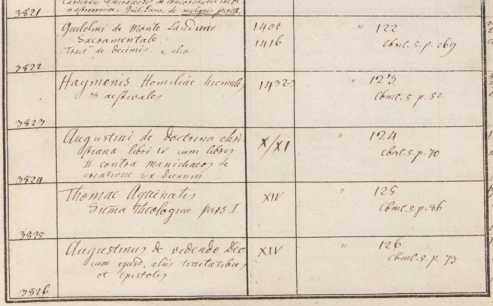 3821
Guilelmi de Monte Lauduno
Sacramentale
1408
1416
" 122
Chmel. S. p. 269
3822
Haymonis Homiliae hiemales
et aestivales
1432
" 123
Chmel. S. p. 52
3823
Augustini de Doctrina chri
stiana libri IV cum libris
II contra manichaeos de
X/XI
" 124
Chmel. S. p. 70
3824
Thomae Aquinatis
Suma theologiae pars I.
XIV
" 125
Chmel. S. p. 86
3825
Augustinus de videndo Deo
cum ejusdem aliis tractatibus
et epistolis
XIV
" 126
Chmel. S. p. 73
3826